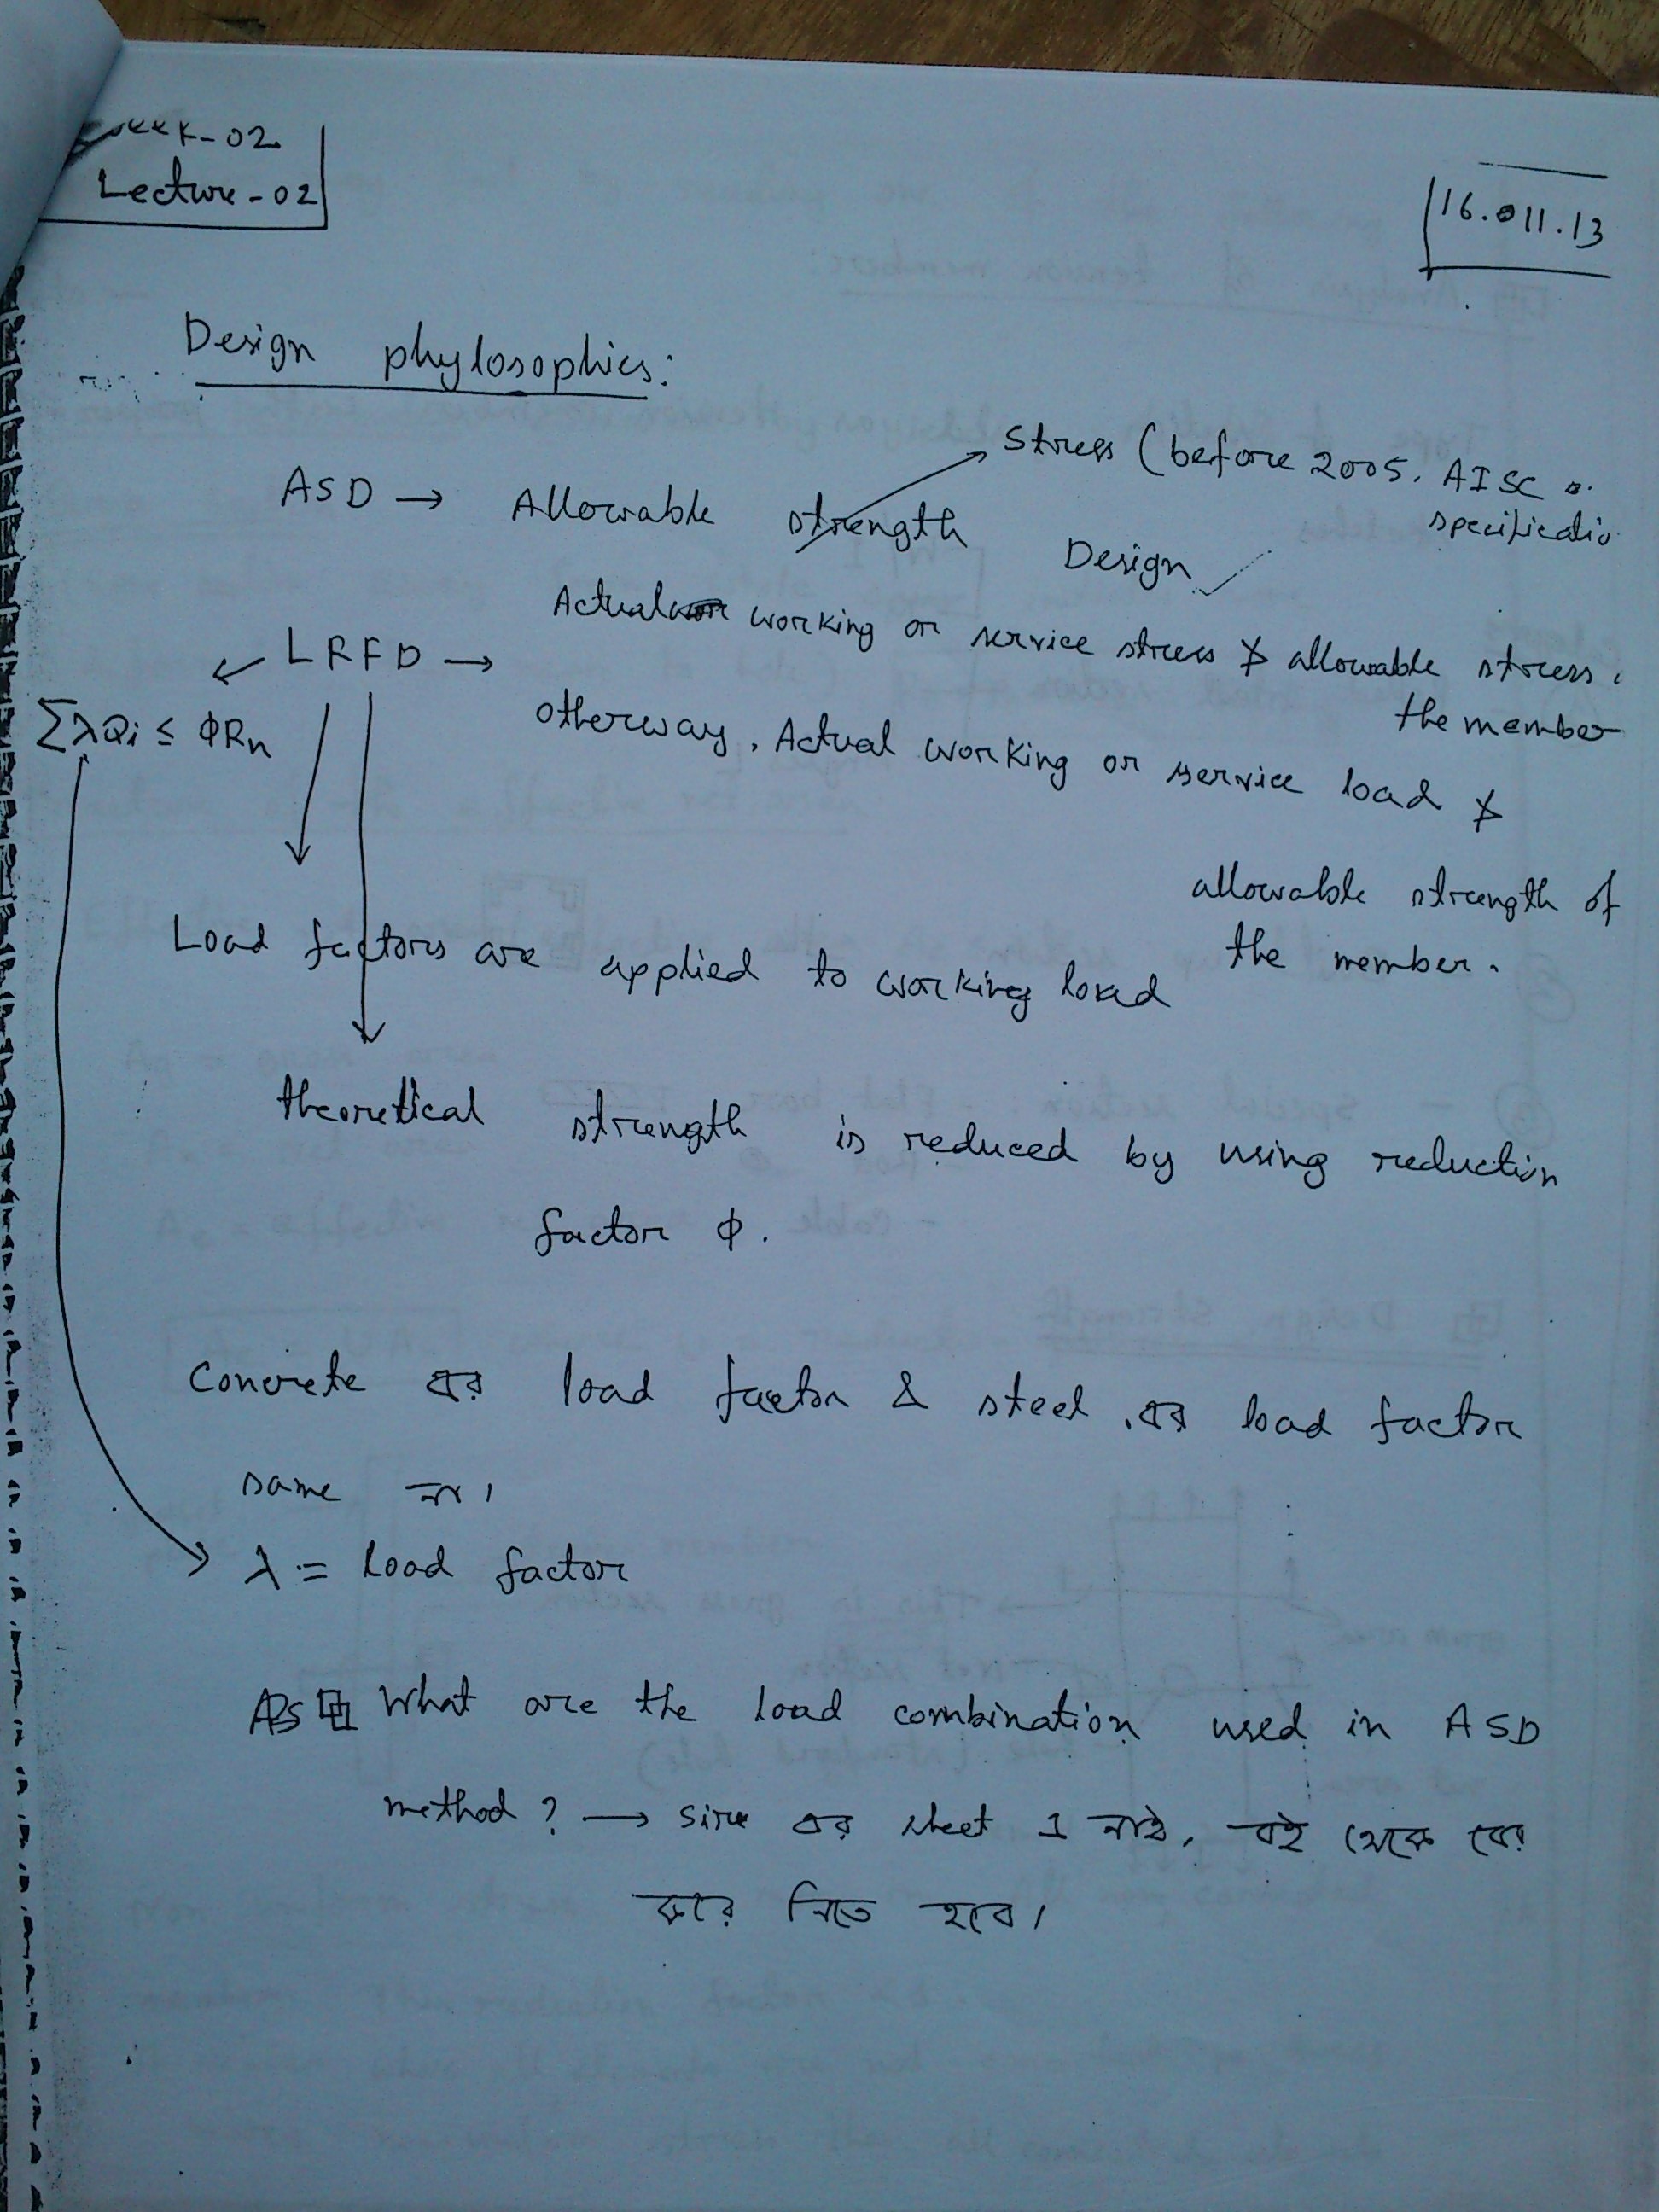 Week-02
Lecture-02
16.011.13
Design phylosophies:
Stress (before 2005. AISC
specificatio
ASD → Allowable strength Design ✓
Actual working or service stress ≯ allowable stress.
LRFD →
the member
∑λQi ≤ ΦRn
otherway, Actual working or service load ≯
allowable strength of
the member.
Load factors are applied to working load
theoretical strength is reduced by using reduction
factor Φ.
Concrete এর load factor & steel এর load factor
same না।
λ = Load factor
What are the load combination used in ASD
method? → sir এর sheet এ নাই, বই থেকে বের
করে নিতে হবে।